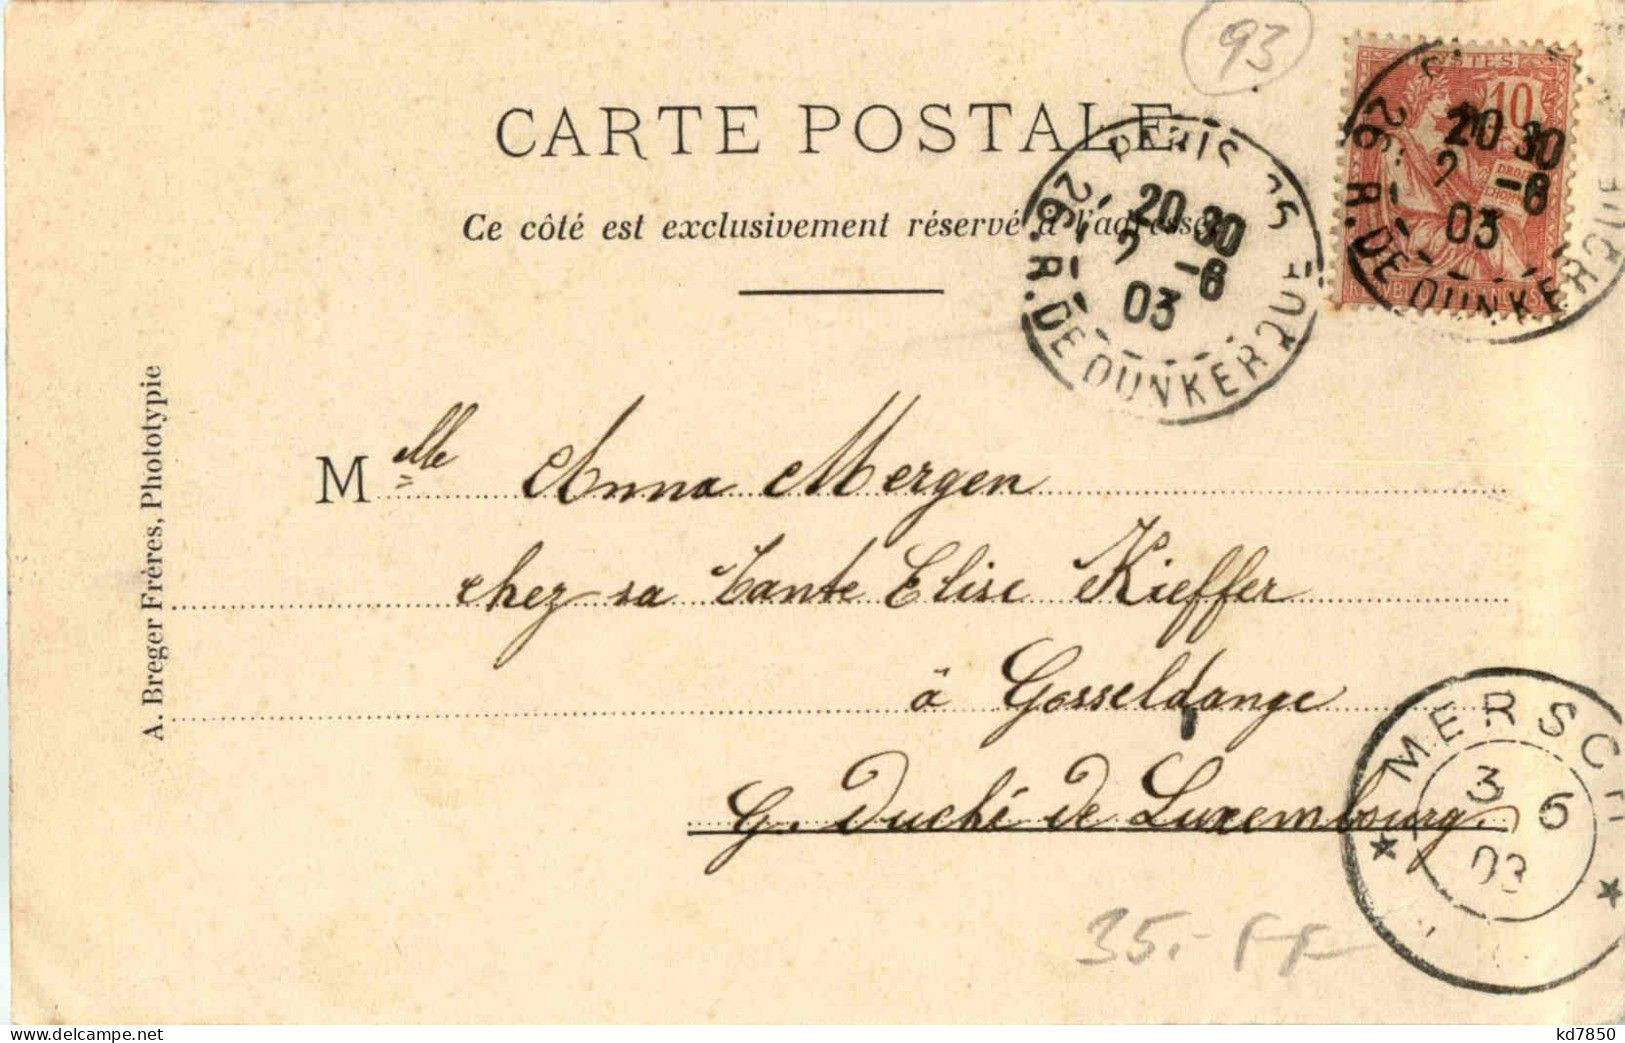 93
CARTE POSTALE
Ce côté est exclusivement réservé à l'adresse
POSTES
10
PARIS 25
20 30
2 -6
03
26. R. DE DUNKERQUE
20 30
2 -6
03
26. R. DE DUNKERQUE
A. Breger Frères, Phototypie
Melle Anna Mergen
chez sa Tante Elise Kieffer
à Gosseldange
G. Duché de Luxembourg
MERSCH
3 6
03
35.- FF
kd7850